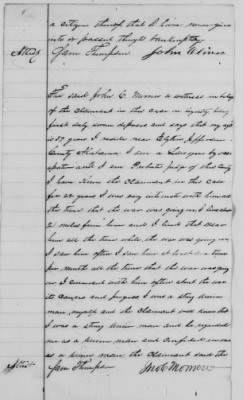 a citizen thereof that I
into or passed through Huntsville
Attest
Sam Thompson John
The said John C. Moore a witness in behalf
of the claimant in this case in equity being
first duly sworn deposes and says that my age
is 57 years I reside near Elyton Jefferson
County Alabama I am a Lawyer by occ
upation and I am Probate Judge of this County
I have known the claimant in this case
for 20 years I was very intimate with him at
the time that the war was going on I lived
2 miles from him and I
him all the time while the war was going on
I saw him often I saw him at least
per month all the time that the war was going
on I conversed with him often about the war
its causes and progress I was a strong Union
man, myself and the Claimant well knew that
I was a strong Union man and he regarded
me as a Union man and
as a Union man, the Claimant said the
Attest
Sam Thompson Jno C Moore